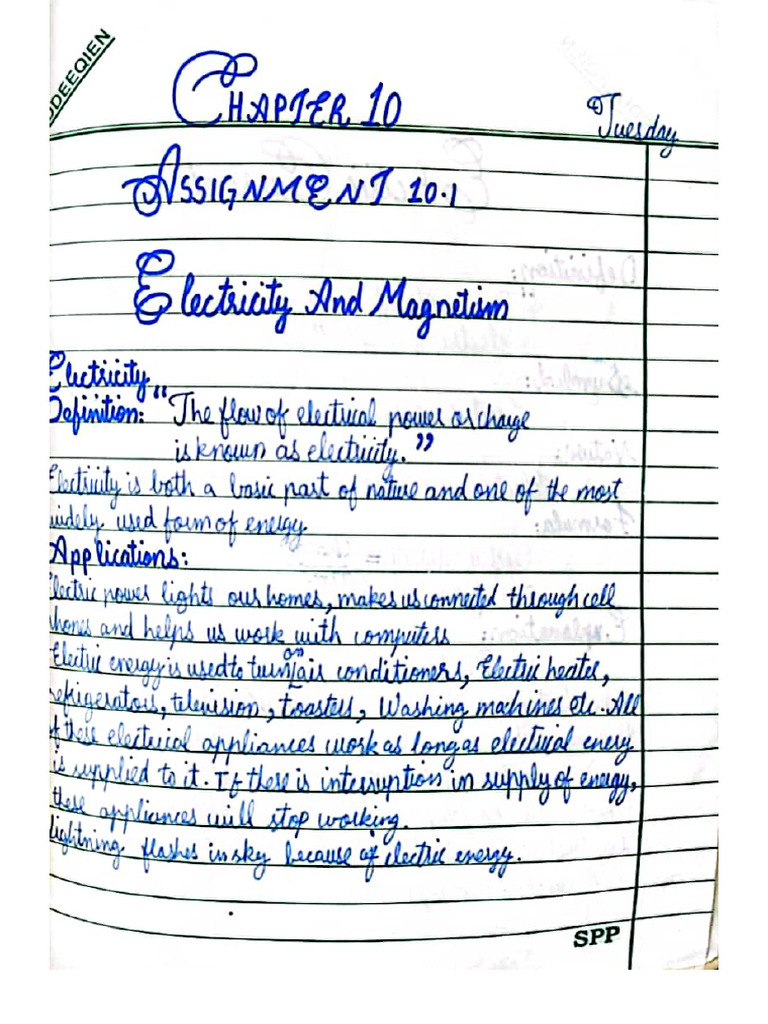 DDEEQIEN
CHAPTER 10
Tuesday
ASSIGNMENT 10.1
Electricity And Magnetism
Electricity
Definition: "The flow of electrical power or charge
is known as electricity."
Electricity is both a basic part of nature and one of the most
widely used form of energy
Applications:
Electric power lights our homes, makes us connected through cell
phones and helps us work with computers
Electric energy is used to turn on air conditioners, Electric heater,
refrigerators, television, toasters, Washing machines etc. All
of these electrical appliances work as long as electrical energy
is supplied to it. If there is interruption in supply of energy,
these appliances will stop working.
lightning flashes in sky because of electric energy.
SPP